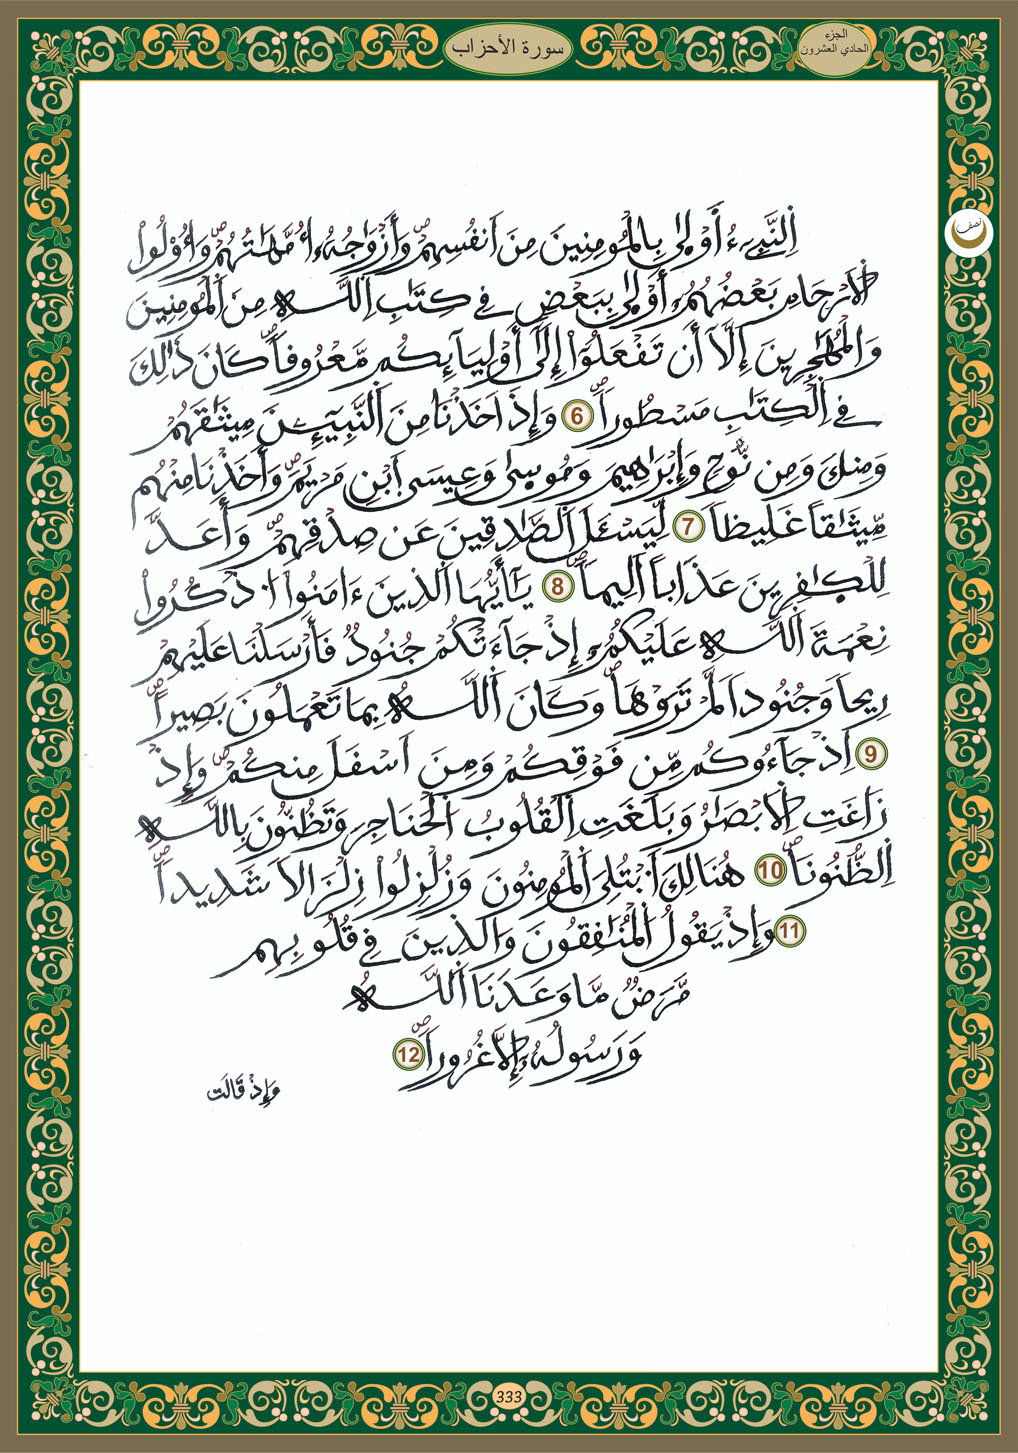 الجزء
الحادي العشرون
سورة الأحزاب
نصف
اِ۬لنَّبِےٓءُ اَوْلَىٰ بِالْمُومِنِينَ مِنَ اَنفُسِهِمْ وَأَزْوَٰجُهُۥٓ أُمَّهَٰتُهُمْ وَأُوْلُواْ
اُ۬لَارْحَامِ بَعْضُهُمُۥٓ أَوْلَىٰ بِبَعْضٖ فِے كِتَٰبِ اِ۬للَّهِ مِنَ اَ۬لْمُومِنِينَ
وَالْمُهَٰجِرِينَ إِلَّآ أَن تَفْعَلُوٓاْ إِلَىٰٓ أَوْلِيَآئِكُم مَّعْرُوفاٗ كَانَ ذَٰلِكَ
فِے اِ۬لْكِتَٰبِ مَسْطُوراٗ 6 وَإِذَ اَخَذْنَا مِنَ اَ۬لنَّبِيٓـِٕۧنَ مِيثَٰقَهُمْ
وَمِنكَ وَمِن نُّوحٖ وَإِبْرَٰهِيمَ وَمُوسَىٰ وَعِيسَى اَ۪بْنِ مَرْيَمَ وَأَخَذْنَا مِنْهُم
مِّيثَٰقاً غَلِيظاٗ 7 لِّيَسْـَٔلَ اَ۬لصَّٰدِقِينَ عَن صِدْقِهِمْ وَأَعَدَّ
لِلْكٰ۪فِرِينَ عَذَاباً اَلِيماٗ 8 يَٰٓأَيُّهَا اَ۬لذِينَ ءَامَنُواْ اُ۟ذْكُرُواْ
نِعْمَةَ اَ۬للَّهِ عَلَيْكُمُۥٓ إِذْ جَآءَتْكُمْ جُنُودٞ فَأَرْسَلْنَا عَلَيْهِمْ
رِيحاٗ وَجُنُوداٗ لَّمْ تَرَوْهَا وَكَانَ اَ۬للَّهُ بِمَا تَعْمَلُونَ بَصِيراً
9 اِذْ جَآءُوكُم مِّن فَوْقِكُمْ وَمِنَ اَسْفَلَ مِنكُمْ وَإِذْ
زَاغَتِ اِ۬لَابْصَٰرُ وَبَلَغَتِ اِ۬لْقُلُوبُ اُ۬لْحَنَاجِرَ وَتَظُنُّونَ بِاللَّهِ
اِ۬لظُّنُونَا 10 هُنَالِكَ اَ۟بْتُلِيَ اَ۬لْمُومِنُونَ وَزُلْزِلُواْ زِلْزَالاٗ شَدِيداٗ
11 وَإِذْ يَقُولُ اُ۬لْمُنَٰفِقُونَ وَالذِينَ فِے قُلُوبِهِم
مَّرَضٞ مَّا وَعَدَنَا اَ۬للَّهُ
وَرَسُولُهُۥٓ إِلَّا غُرُوراٗ 12
وَإِذْ قَالَت
333